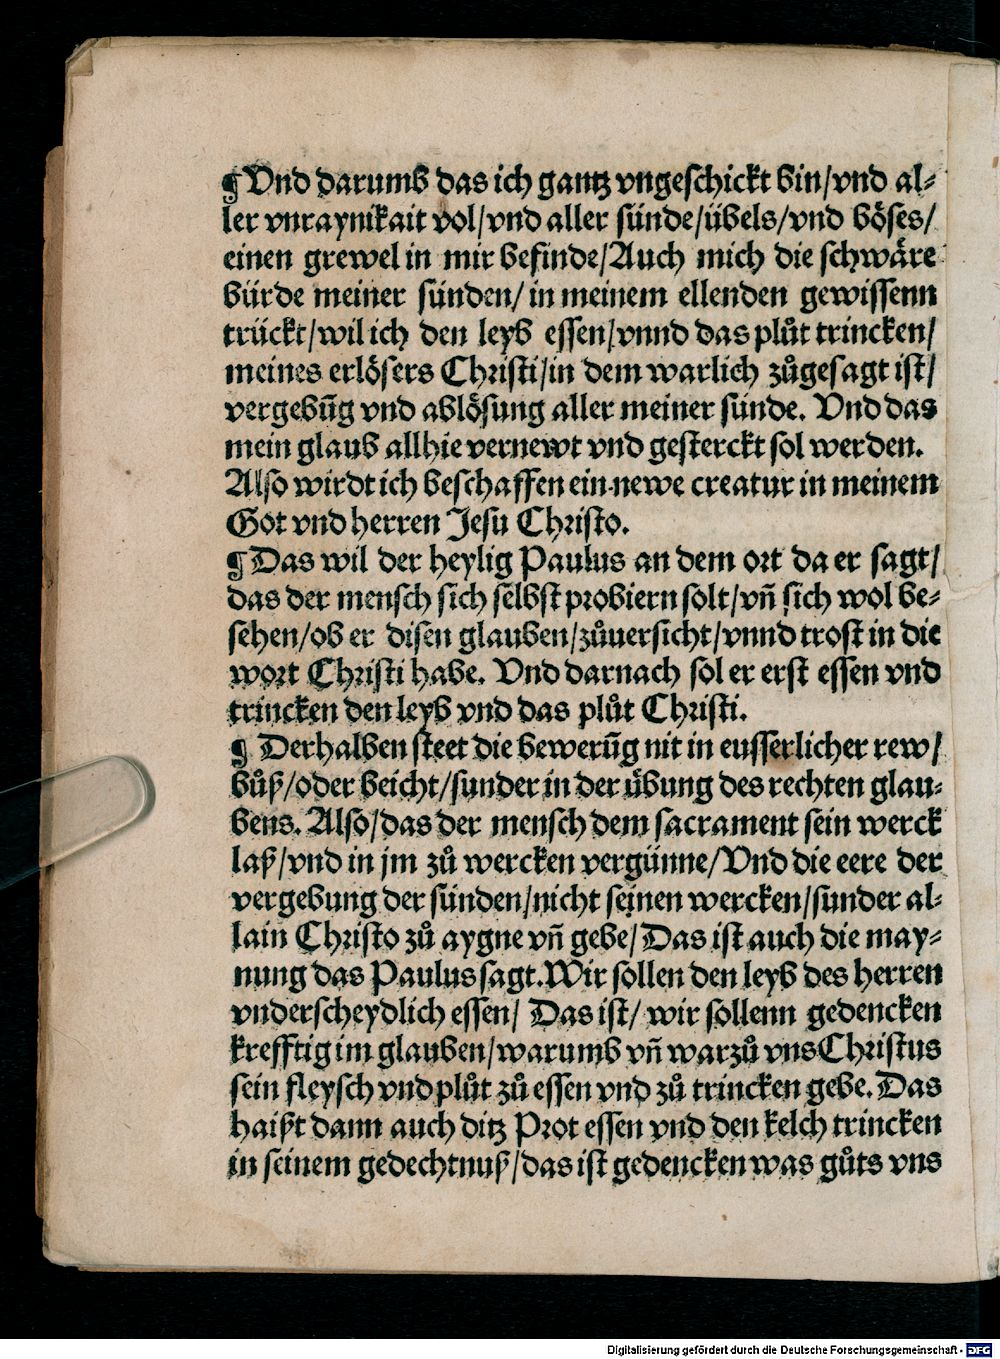 ¶ Vnd darumb das ich gantz vngeschickt bin/vnd al⸗
ler vnraynikait vol/vnd aller sünde/übels/vnd böses/
einen grewel in mir befinde/Auch mich die schwäre
bürde meiner sünden/ in meinem ellenden gewissenn
trückt/wil ich den leyb essen/vnnd das plůt trincken/
meines erlösers Christi/in dem warlich zůgesagt ist/
vergebūg vnd ablösung aller meiner sünde. Vnd das
mein glaub allhie vernewt vnd gesterckt sol werden.
Also wirdt ich beschaffen ein newe creatur in meinem
Got vnd herren Jesu Christo.
¶ Das wil der heylig Paulus an dem ort da er sagt/
das der mensch sich selbst probiern solt/vñ sich wol be⸗
sehen/ob er disen glauben/zůuersicht/vnnd trost in die
wort Christi habe. Vnd darnach sol er erst essen vnd
trincken den leyb vnd das plůt Christi.
¶ Derhalben steet die bewerūg nit in eusserlicher rew/
bůß/oder beicht/sunder in der übung des rechten glau⸗
bens. Also/das der mensch dem sacrament sein werck
laß/vnd in jm zů wercken vergünne/Vnd die eere der
vergebung der sünden/nicht seinen wercken/sunder al⸗
lain Christo zů aygne vñ gebe/Das ist auch die may⸗
nung das Paulus sagt.Wir sollen den leyb des herren
vnderscheydlich essen/ Das ist/ wir sollenn gedencken
krefftig im glauben/warumb vñ warzů vns Christus
sein fleysch vnd plůt zů essen vnd zů trincken gebe. Das
haißt dann auch ditz Prot essen vnd den kelch trincken
in seinem gedechtnuß/das ist gedencken was gůts vns
Digitalisierung gefördert durch die Deutsche Forschungsgemeinschaft - DFG